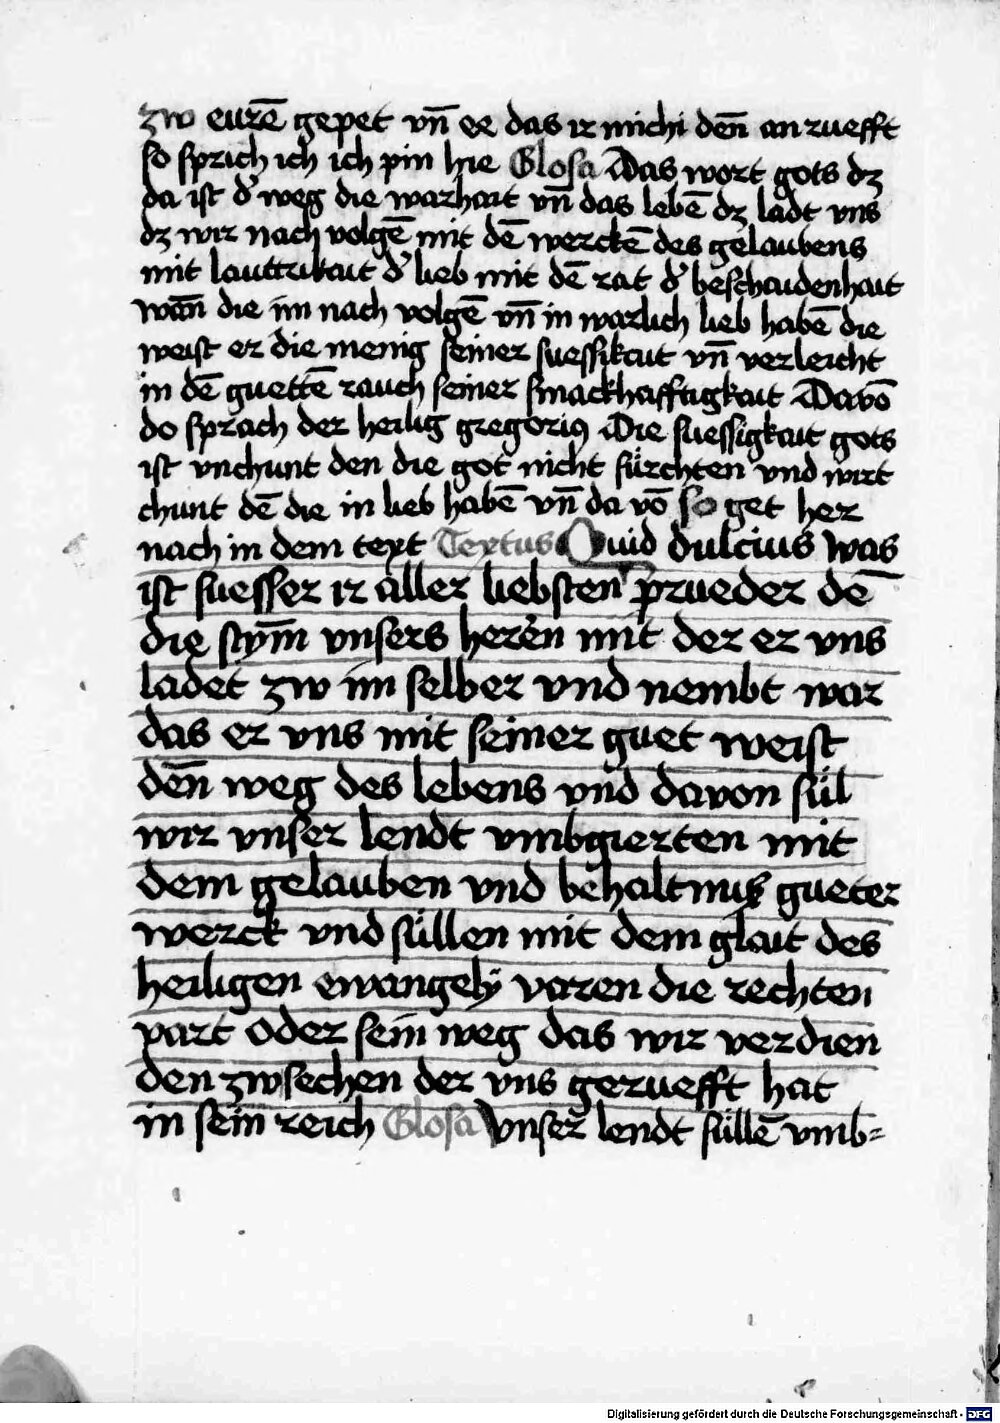 zw eurē gepet vn̄ ee das ir michi den̄ an ruefft
so sprich ich ich pin hie Glosa Das wort gots dz
da ist d' weg die warhait vn̄ das lebē dz ladt vns
dz wir nach volgē mit dē werckē des gelaubens
mit lauttrikait d' lieb mit dē rat d' beschaidenhait
wān die im nach volgē vn̄ in warlich lieb habē die
weist er die menig seiner suessikait vn̄ verleicht
in dē guettē rauch seiner smackhafftigkait Davō
do sprach der heilig gregoriꝰ Die suessigkait gots
ist vnchunt den die got nicht fürchten vnd wirt
chunt dē die in lieb habē vn̄ da vō so get her
nach in dem text Textus Quid dulcius was
ist suesser ir aller liebsten prueder dē
die stym̄ vnsers heren mit der er vns
ladet zw im selber vnd nembt war
das er vns mit seiner guet weist
den̄ weg des lebens vnd davon sül
wir vnser lendt vmbgierten mit
dem gelauben vnd behaltnuß gueter
werck vnd süllen mit dem glait des
heiligen ewangelÿ varen die rechten
vart oder sein weg das wir verdien
den zwsechen der vns geruefft hat
in sein reich Glosa Vnser lendt süllē vmb=
Digitalisierung gefördert durch die Deutsche Forschungsgemeinschaft - DFG